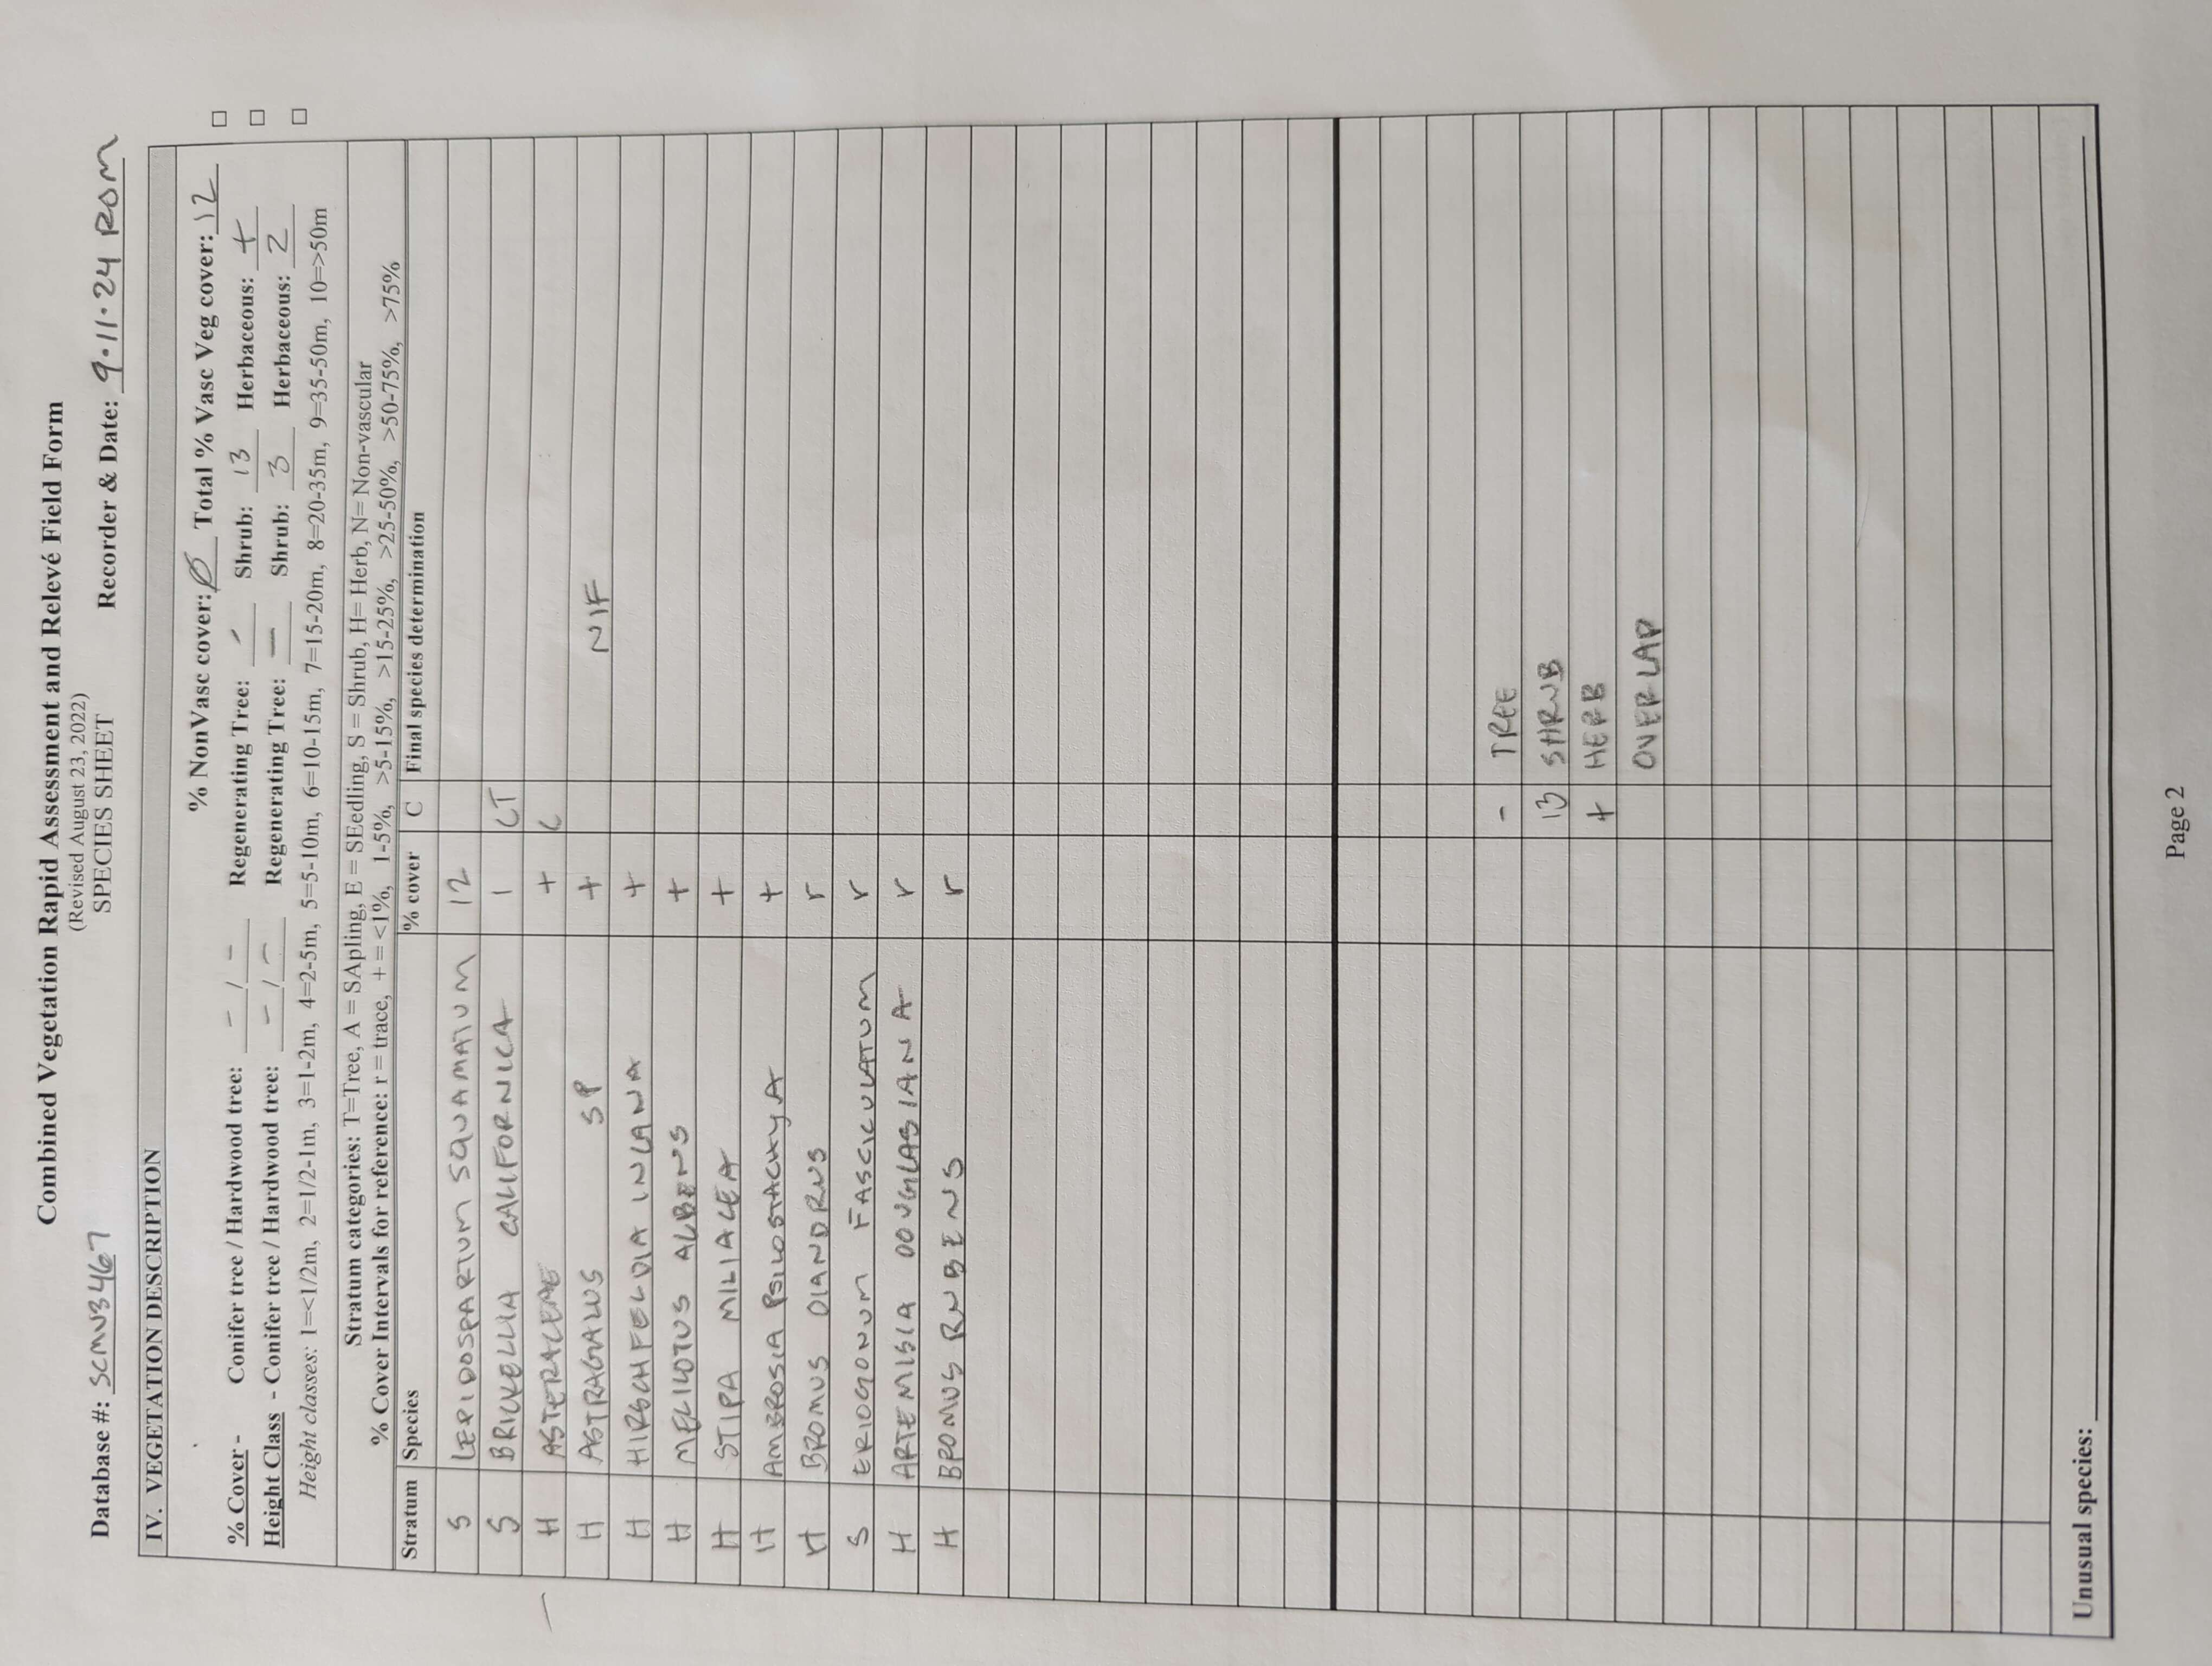 Combined Vegetation Rapid Assessment and Relevé Field Form
(Revised August 23, 2022)
SPECIES SHEET
Database #: SCMU3467 Recorder & Date: 9.11.24 ROM
IV. VEGETATION DESCRIPTION
% NonVasc cover: Ø Total % Vasc Veg cover: 12 □
% Cover - Conifer tree / Hardwood tree: - / - Regenerating Tree: - Shrub: 13 Herbaceous: + □
Height Class - Conifer tree / Hardwood tree: - / - Regenerating Tree: - Shrub: 3 Herbaceous: 2 □
Height classes: 1=<1/2m, 2=1/2-1m, 3=1-2m, 4=2-5m, 5=5-10m, 6=10-15m, 7=15-20m, 8=20-35m, 9=35-50m, 10=>50m
Stratum categories: T=Tree, A = SApling, E = SEedling, S = Shrub, H= Herb, N= Non-vascular
% Cover Intervals for reference: r = trace, + = <1%, 1-5%, >5-15%, >15-25%, >25-50%, >50-75%, >75%
Stratum Species % cover C Final species determination
S LEPIDOSPARTUM SQUAMATUM 12
S BRICKELLIA CALIFORNICA 1 CT
H ASTERACEAE + C
H ASTRAGALUS SP + NIF
H HIRSCHFELDIA INCANA +
H MELILOTUS ALBENS +
H STIPA MILIACEA +
H AMBROSIA PSILOSTACHYA +
H BROMUS DIANDRUS r
S ERIOGONUM FASCICULATUM r
H ARTEMISIA DOUGLASIANA r
H BROMUS RUBENS r
- TREE
13 SHRUB
+ HERB
OVERLAP
Unusual species:
Page 2